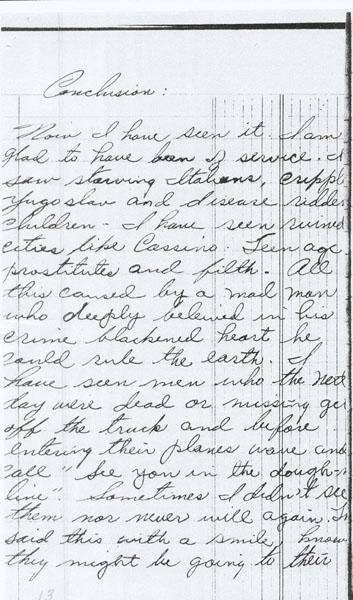 Conclusion:
Now I have seen it. I am
glad to have been of service. I
saw starving Italians, crippl
Yugoslav and disease ridden
children - I have seen ruined
cities like Cassino. Teen age
prostitutes and filth. All
this caused by a mad man
who deeply beleived in his
crime blackened heart he
could rule the earth. I
have seen men who the next
day were dead or missing get
off the truck and before
entering their planes wave and
call "See you in the dough-n
line". Sometimes I didn't see
them nor never will again.
said this with a smile, know
they might be going to their
13